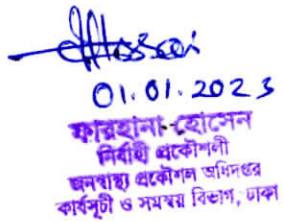 01.01.2023
ফারহানা হোসেন
নির্বাহী প্রকৌশলী
জনস্বাস্থ্য প্রকৌশল অধিদপ্তর
কার্যসূচী ও সমন্বয় বিভাগ, ঢাকা